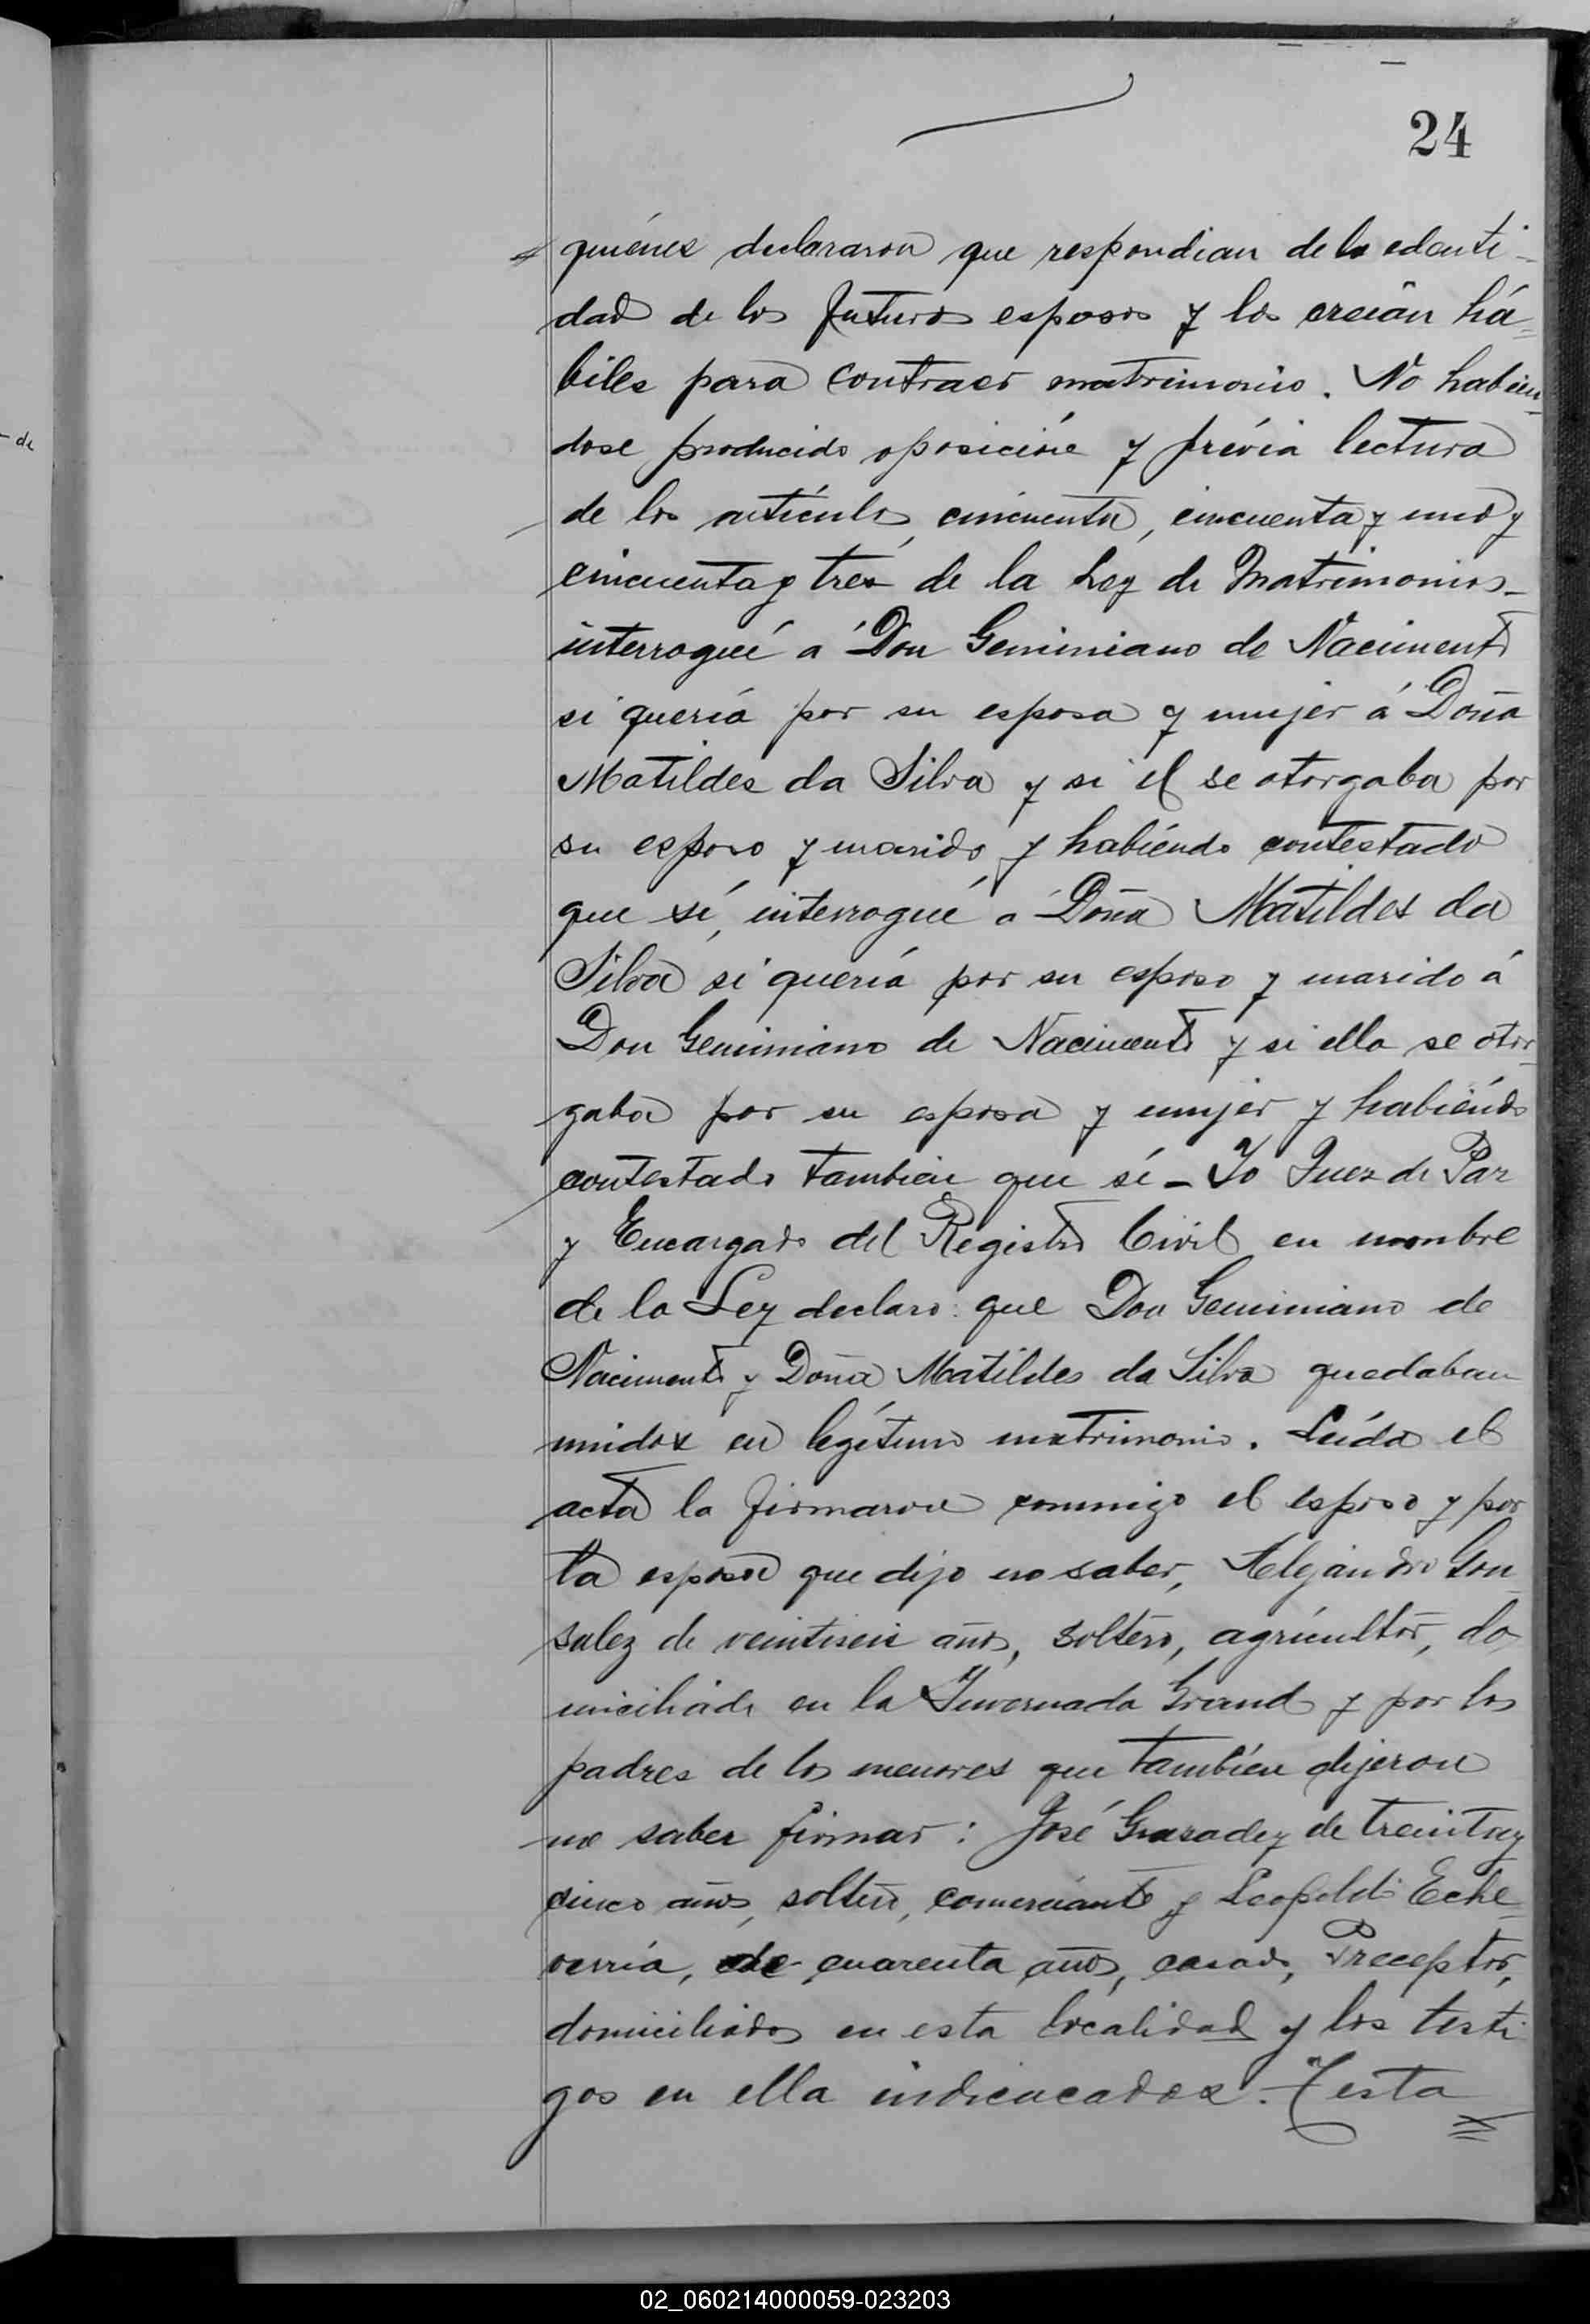 24
quiénes declararon que respondian de la edenti-
dad de los futuros esposos y los creían há=
biles para contraer matrimonio. No habien-
dose producido oposición y prévia lectura
de los artículos, cincuenta, cincuenta y uno y
cincuenta y tres de la Ley de Matrimonios-
interrogué á Don Geminiano de Naciment
si quería por su esposa y mujer á Doña
Matildes da Silva y si el se otorgaba por
su esposo y marido y habiéndo contestado
que sí, interrogué a Doña Matildes da
Silva si quería por su esposo y marido á
Don Geminiano de Naciment y si ella se otor-
gaba por su esposa y mujer y habiéndo
contestado tambien que sí - Yo Juez de Paz
y Encargado del Registro Civil en nombre
de la Ley declaro: que Don Geminiano de
Naciment y Doña Matildes da Silva quedaban
unidos en legítimo matrimonio. Leída el
acta la firmaron conmigo el esposo y por
la esposa que dijo no saber, Alejandro Gon-
salez de veintiseis años, soltero, agricultor, do-
miciliado en la Invernada Grande y por los
padres de los menores que también dijeron
no saber firmar: José de treinta y
cinco años, soltero, comerciante y Leopoldo Eche=
verría, de cuarenta años, casado, Preceptor,
domiciliados en esta localidad y los testi
gos en ella indicacados. Testa
- de
02_060214000059-023203